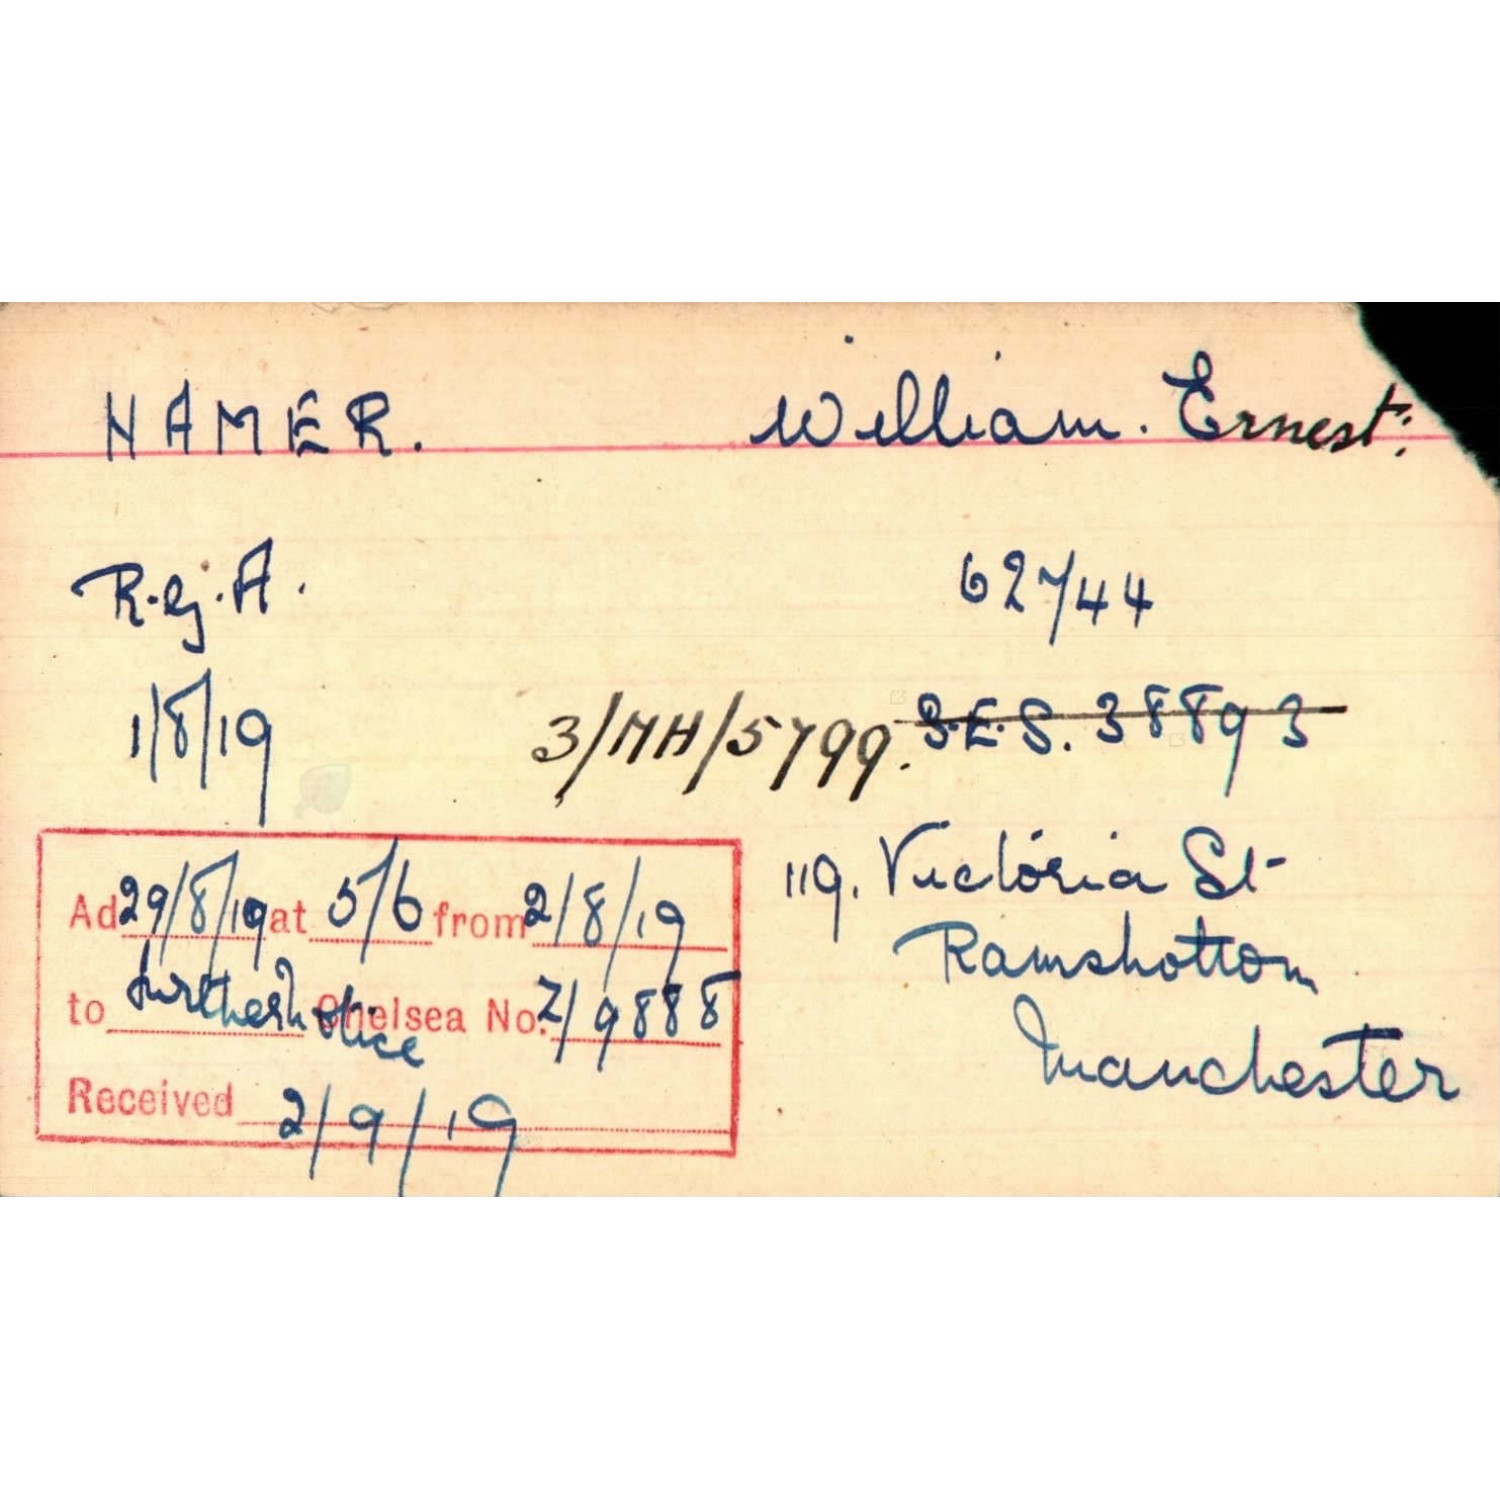 NAMER. William. Ernest.
R.G.A. 62744
1/8/19 3/MH/5799. S.E.S. 38893
119. Victoria St
Ramsbottom
Manchester
Ad 29/8/19 at 5/6 from 2/8/19
to further notice Chelsea No. Z/9888
Received 2/9/19